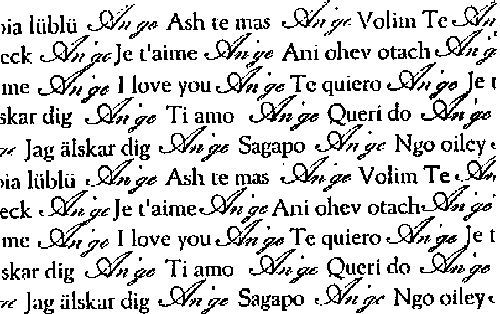 bia lüblü Ange Ash te mas Ange Volim Te An
eck Ange Je t'aime Ange Ani ohev otach Ange
me Ange I love you Ange Te quiero Ange Je t
skar dig Ange Ti amo Ange Queri do Ange
ge Jag älskar dig Ange Sagapo Ange Ngo oiley
bia lüblü Ange Ash te mas Ange Volim Te An
eck Ange Je t'aime Ange Ani ohev otach Ange
me Ange I love you Ange Te quiero Ange Je t
skar dig Ange Ti amo Ange Queri do Ange
ge Jag älskar dig Ange Sagapo Ange Ngo oiley